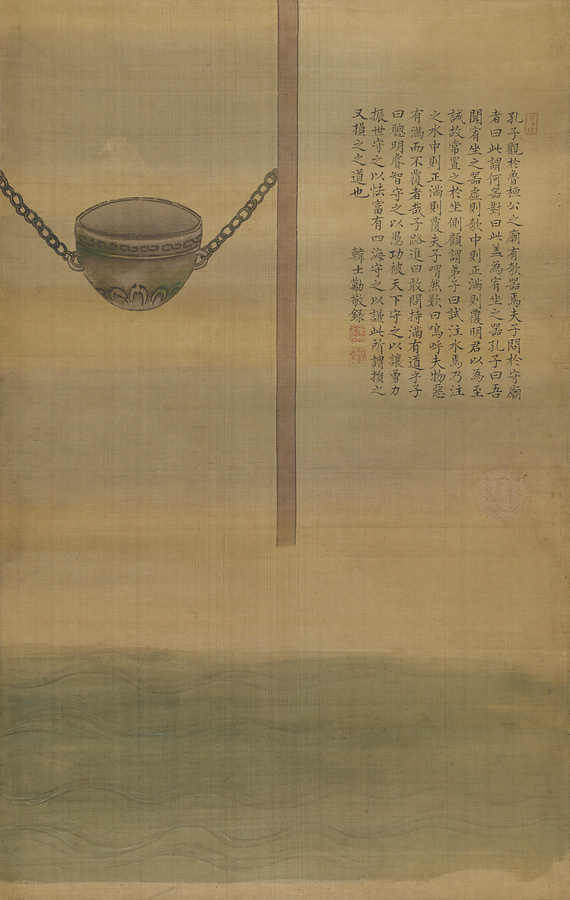 孔子觀於魯桓公之廟有欹器焉夫子問於守廟
者曰此謂何器對曰此蓋為宥坐之器孔子曰吾
聞宥坐之器虛則欹中則正滿則覆明君以為至
誡故常置之於坐側顧謂弟子曰試注水焉乃注
之水中則正滿則覆夫子喟然歎曰嗚呼夫物惡
有滿而不覆者哉子路進曰敢問持滿有道乎子
曰聰明睿智守之以愚功被天下守之以讓勇力
振世守之以怯富有四海守之以謙此所謂損之
又損之之道也
韓士勤敬錄